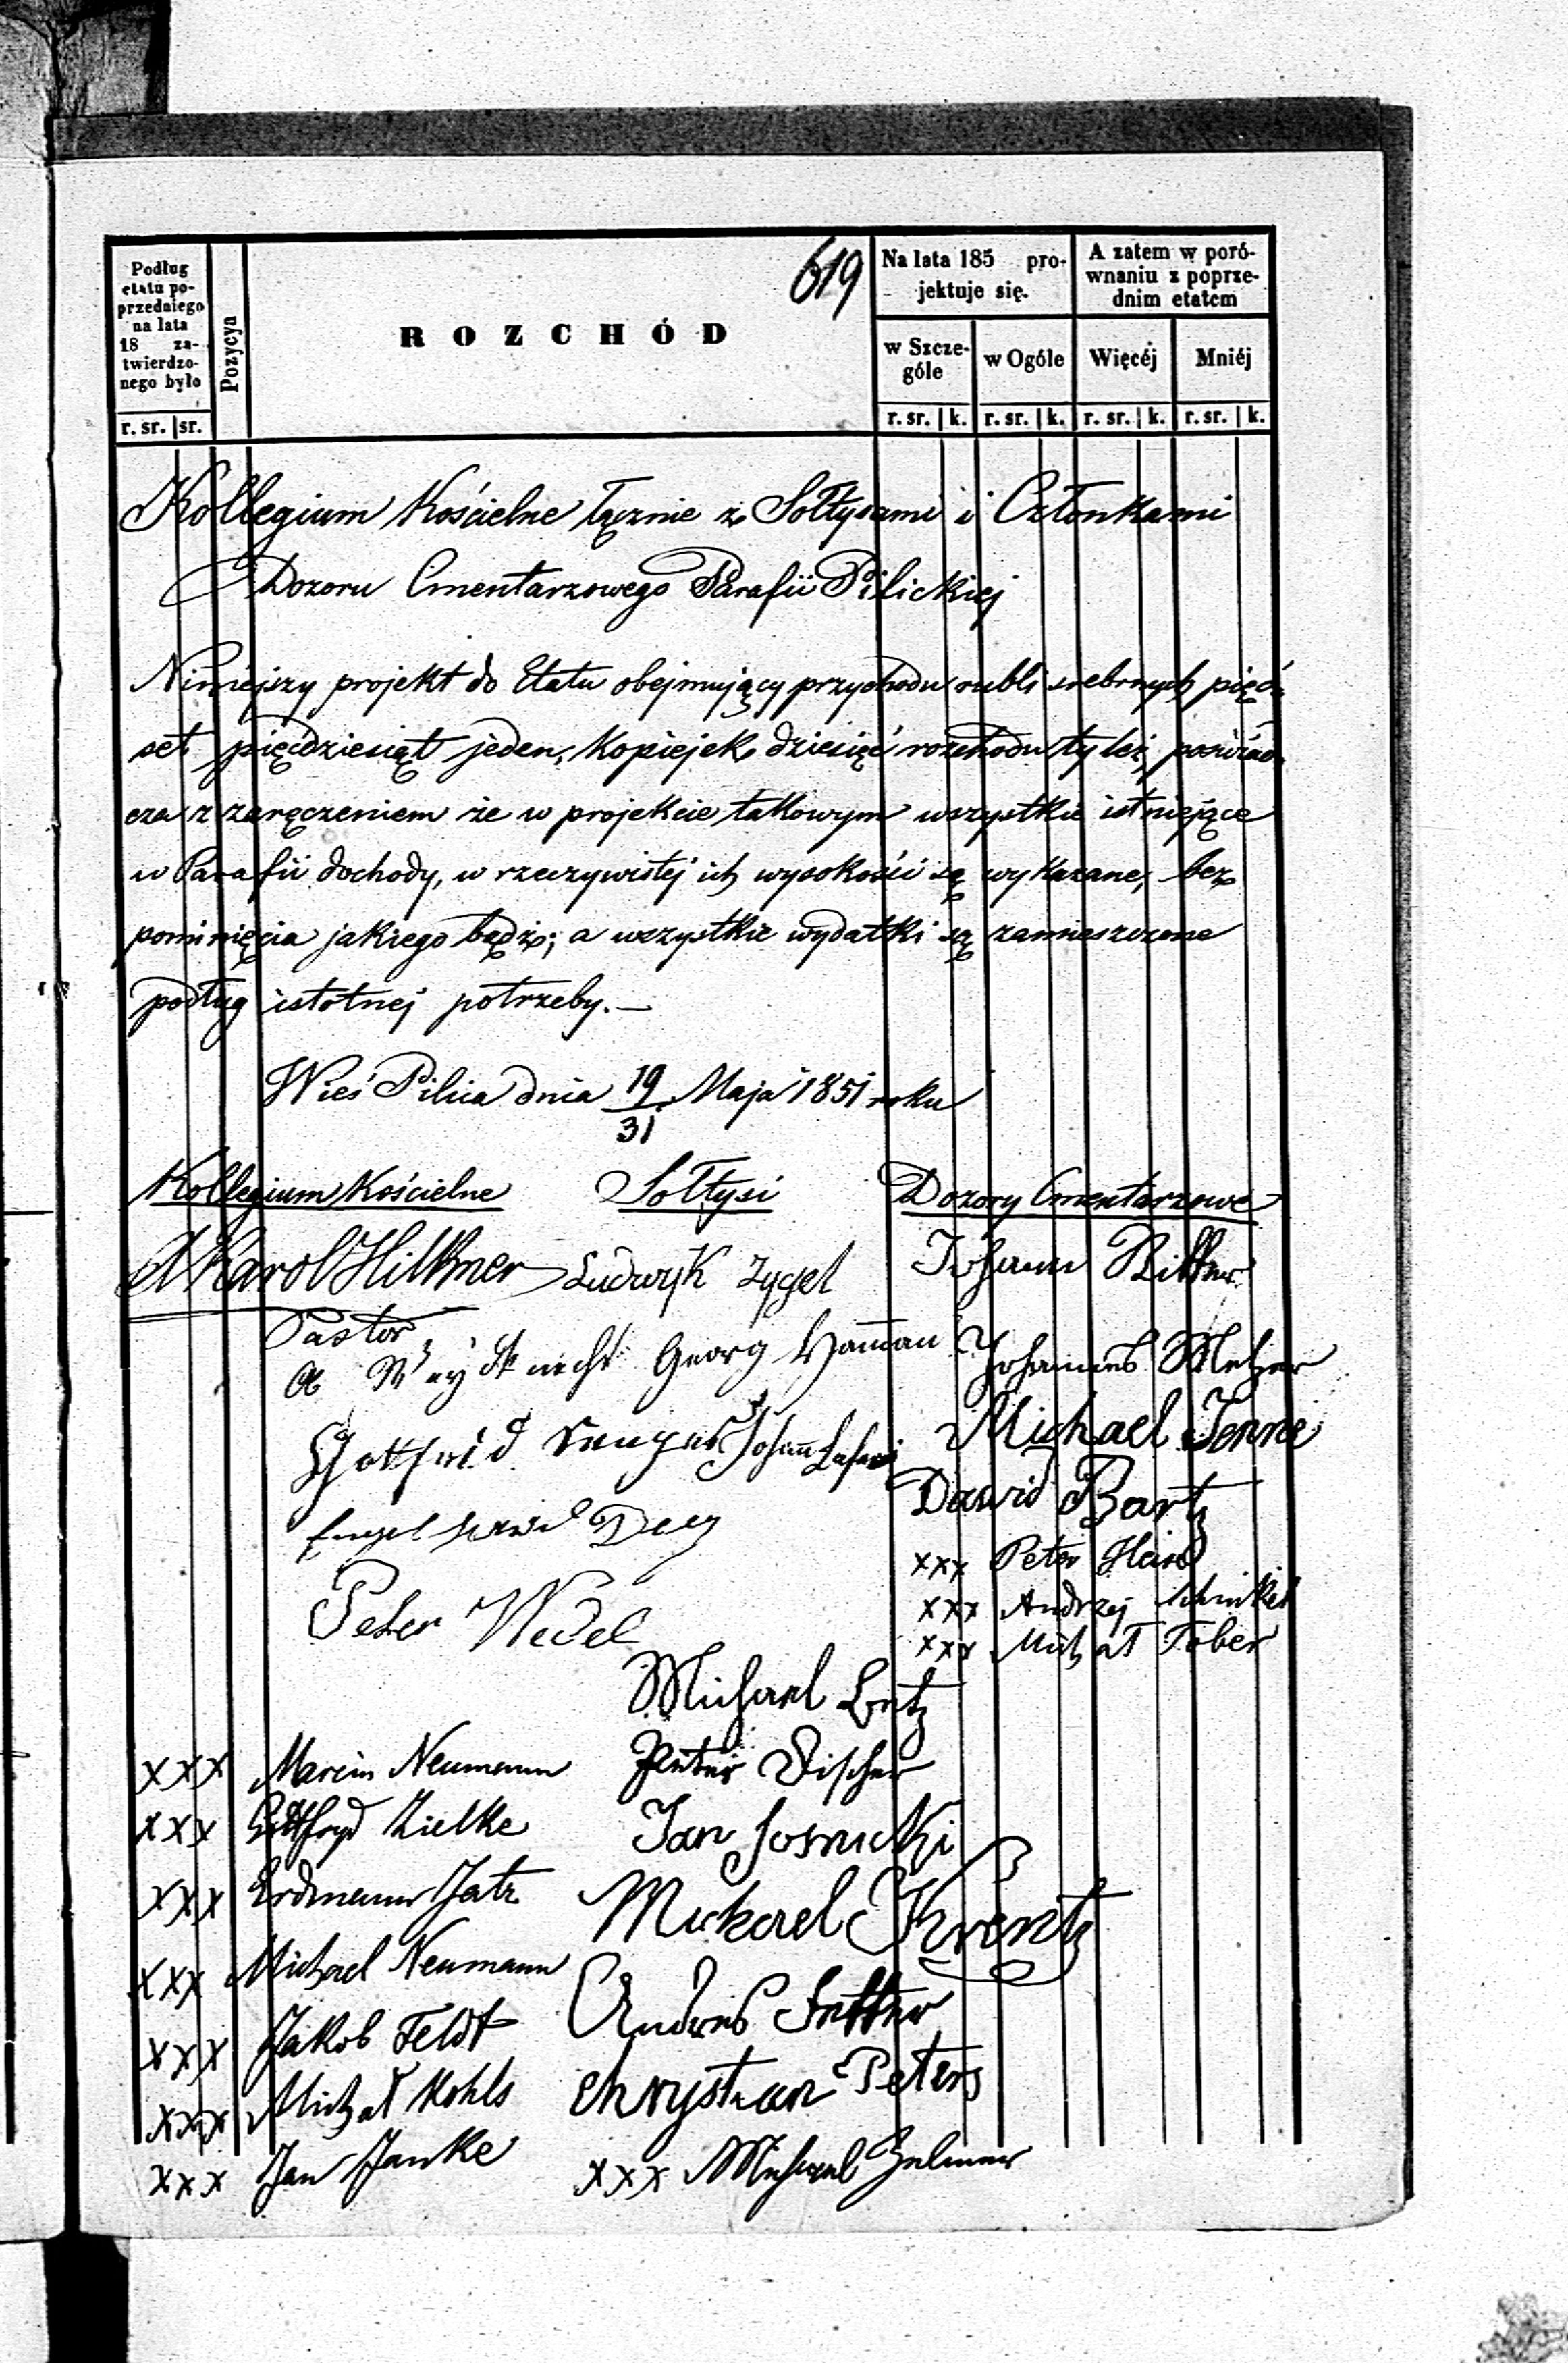 619
Podług
etatu po-
przedniego
na lata
18 za-
twierdzo-
nego było
r. sr. sr.
Pozycya
ROZCHÓD
Na lata 185 pro-
jektuje się.
w Szcze-
góle
w Ogóle
r. sr. k. r. sr. k.
A zatem w poró-
wnaniu z poprze-
dnim etatem
Więcéj
Mniéj
r. sr. k. r. sr. k.
Kollegium Kościelne łącznie z Sołtysami i Członkami
Dozoru Cmentarzowego Parafii Pilickiej
Niniejszy projekt do Etatu obejmujący przychodu rubli srebrnych pięć-
set pięćdziesiąt jeden, kopiejek dziesięć rozchodu tyleż, poświad-
cza z zaręczeniem że w projekcie takowym wszystkie istniejące
w Parafii dochody, w rzeczywistej ich wysokości są wykazane, bez
pominięcia jakiego bądź; a wszystkie wydatki są zamieszczone
podług istotnej potrzeby.—
Wieś Pilica dnia 19/31 Maja 1851 roku
Kollegium Kościelne
Karol Hilkner
Pastor
Gottfried
Engel
Peter Wedel
xxx Marcin Neumann
xxx Gottfryd Zielke
xxx Erdmann Jatz
xxx Michael Neumann
xxx Jakob Feldt
xxx Michał Kohls
xxx Jan Janke
Sołtysi
Ludwyk Zygel
Georg Haman
Johann
Michael
Peter Discher
Jan Sosnicki
Mickael Krentz
Andres
Chrystian Peters
xxx Michael
Dozory Cmentarzowe
Johann Ritter
Johannes Metzner
Michael Jenne
Dawid Bartz
xxx Peter Heid
xxx Andrzej Schinkel
xxx Michał Tober